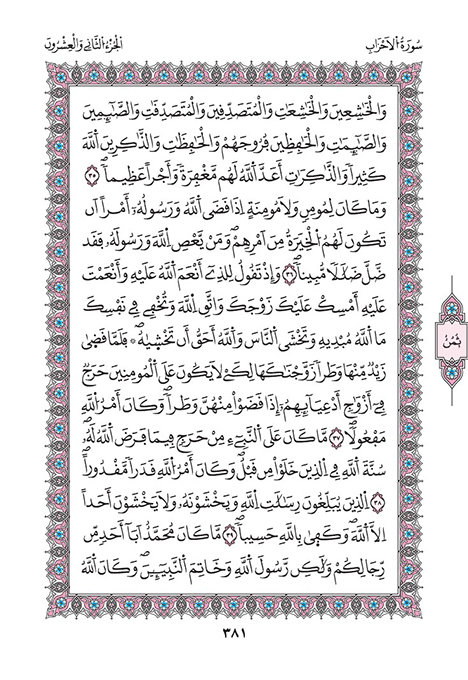 سُورَةُ الَاحْزَابِ
الجُزْءُ الثَّانِي وَالْعِشْرُونَ
وَالْخَٰشِعِينَ وَالْخَٰشِعَٰتِ وَالْمُتَصَدِّقِينَ وَالْمُتَصَدِّقَٰتِ وَالصَّٰٓئِمِينَ
وَالصَّٰٓئِمَٰتِ وَالْحَٰفِظِينَ فُرُوجَهُمْ وَالْحَٰفِظَٰتِ وَالذَّٰكِرِينَ اَللَّهَ
كَثِيراٗ وَالذَّٰكِرَٰتِ أَعَدَّ اَللَّهُ لَهُم مَّغْفِرَةٗ وَأَجْراً عَظِيماٗۖ ٣٥
وَمَا كَانَ لِمُومِنٖ وَلَا مُومِنَةٍ اِذَا قَضَى اَللَّهُ وَرَسُولُهُۥٓ أَمْراً اَن
تَكُونَ لَهُمُ اُلْخِيَرَةُ مِنَ اَمْرِهِمْۖ وَمَنْ يَّعْصِ اِللَّهَ وَرَسُولَهُۥ فَقَد
ضَّلَّ ضَلَٰلاٗ مُّبِيناٗۖ ٣٦ وَإِذْ تَقُولُ لِلذِےٓ أَنْعَمَ اَللَّهُ عَلَيْهِ وَأَنْعَمْتَ
عَلَيْهِ أَمْسِكْ عَلَيْكَ زَوْجَكَ وَاتَّقِ اِللَّهَ وَتُخْفِے فِے نَفْسِكَ
مَا اَللَّهُ مُبْدِيهِ وَتَخْشَى اَلنَّاسَ وَاللَّهُ أَحَقُّ أَن تَخْشَىٰهُۖ ۞ فَلَمَّا قَضَىٰ
زَيْدٞ مِّنْهَا وَطَراٗ زَوَّجْنَٰكَهَا لِكَےْ لَا يَكُونَ عَلَى اَلْمُومِنِينَ حَرَجٞ
فِےٓ أَزْوَٰجِ أَدْعِيَآئِهِمُۥٓ إِذَا قَضَوْاْ مِنْهُنَّ وَطَراٗۖ وَكَانَ أَمْرُ اُللَّهِ
مَفْعُولاٗۖ ٣٧ مَّا كَانَ عَلَى اَلنَّبِےٓءِ مِنْ حَرَجٖ فِيمَا فَرَضَ اَللَّهُ لَهُۥۖ
سُنَّةَ اَللَّهِ فِے اِلذِينَ خَلَوْاْ مِن قَبْلُۖ وَكَانَ أَمْرُ اُللَّهِ قَدَراٗ مَّقْدُوراً
٣٨ اِلذِينَ يُبَلِّغُونَ رِسَٰلَٰتِ اِللَّهِ وَيَخْشَوْنَهُۥ وَلَا يَخْشَوْنَ أَحَداً
اِلَّا اَللَّهَۖ وَكَفَىٰ بِاللَّهِ حَسِيباٗۖ ٣٩ مَّا كَانَ مُحَمَّدٌ اَبَآ أَحَدٖ مِّن
رِّجَالِكُمْ وَلَٰكِن رَّسُولَ اَللَّهِ وَخَاتِمَ اَلنَّبِيٓـِٕينَۖ وَكَانَ اَللَّهُ
ثُمُنُ
٣٨١